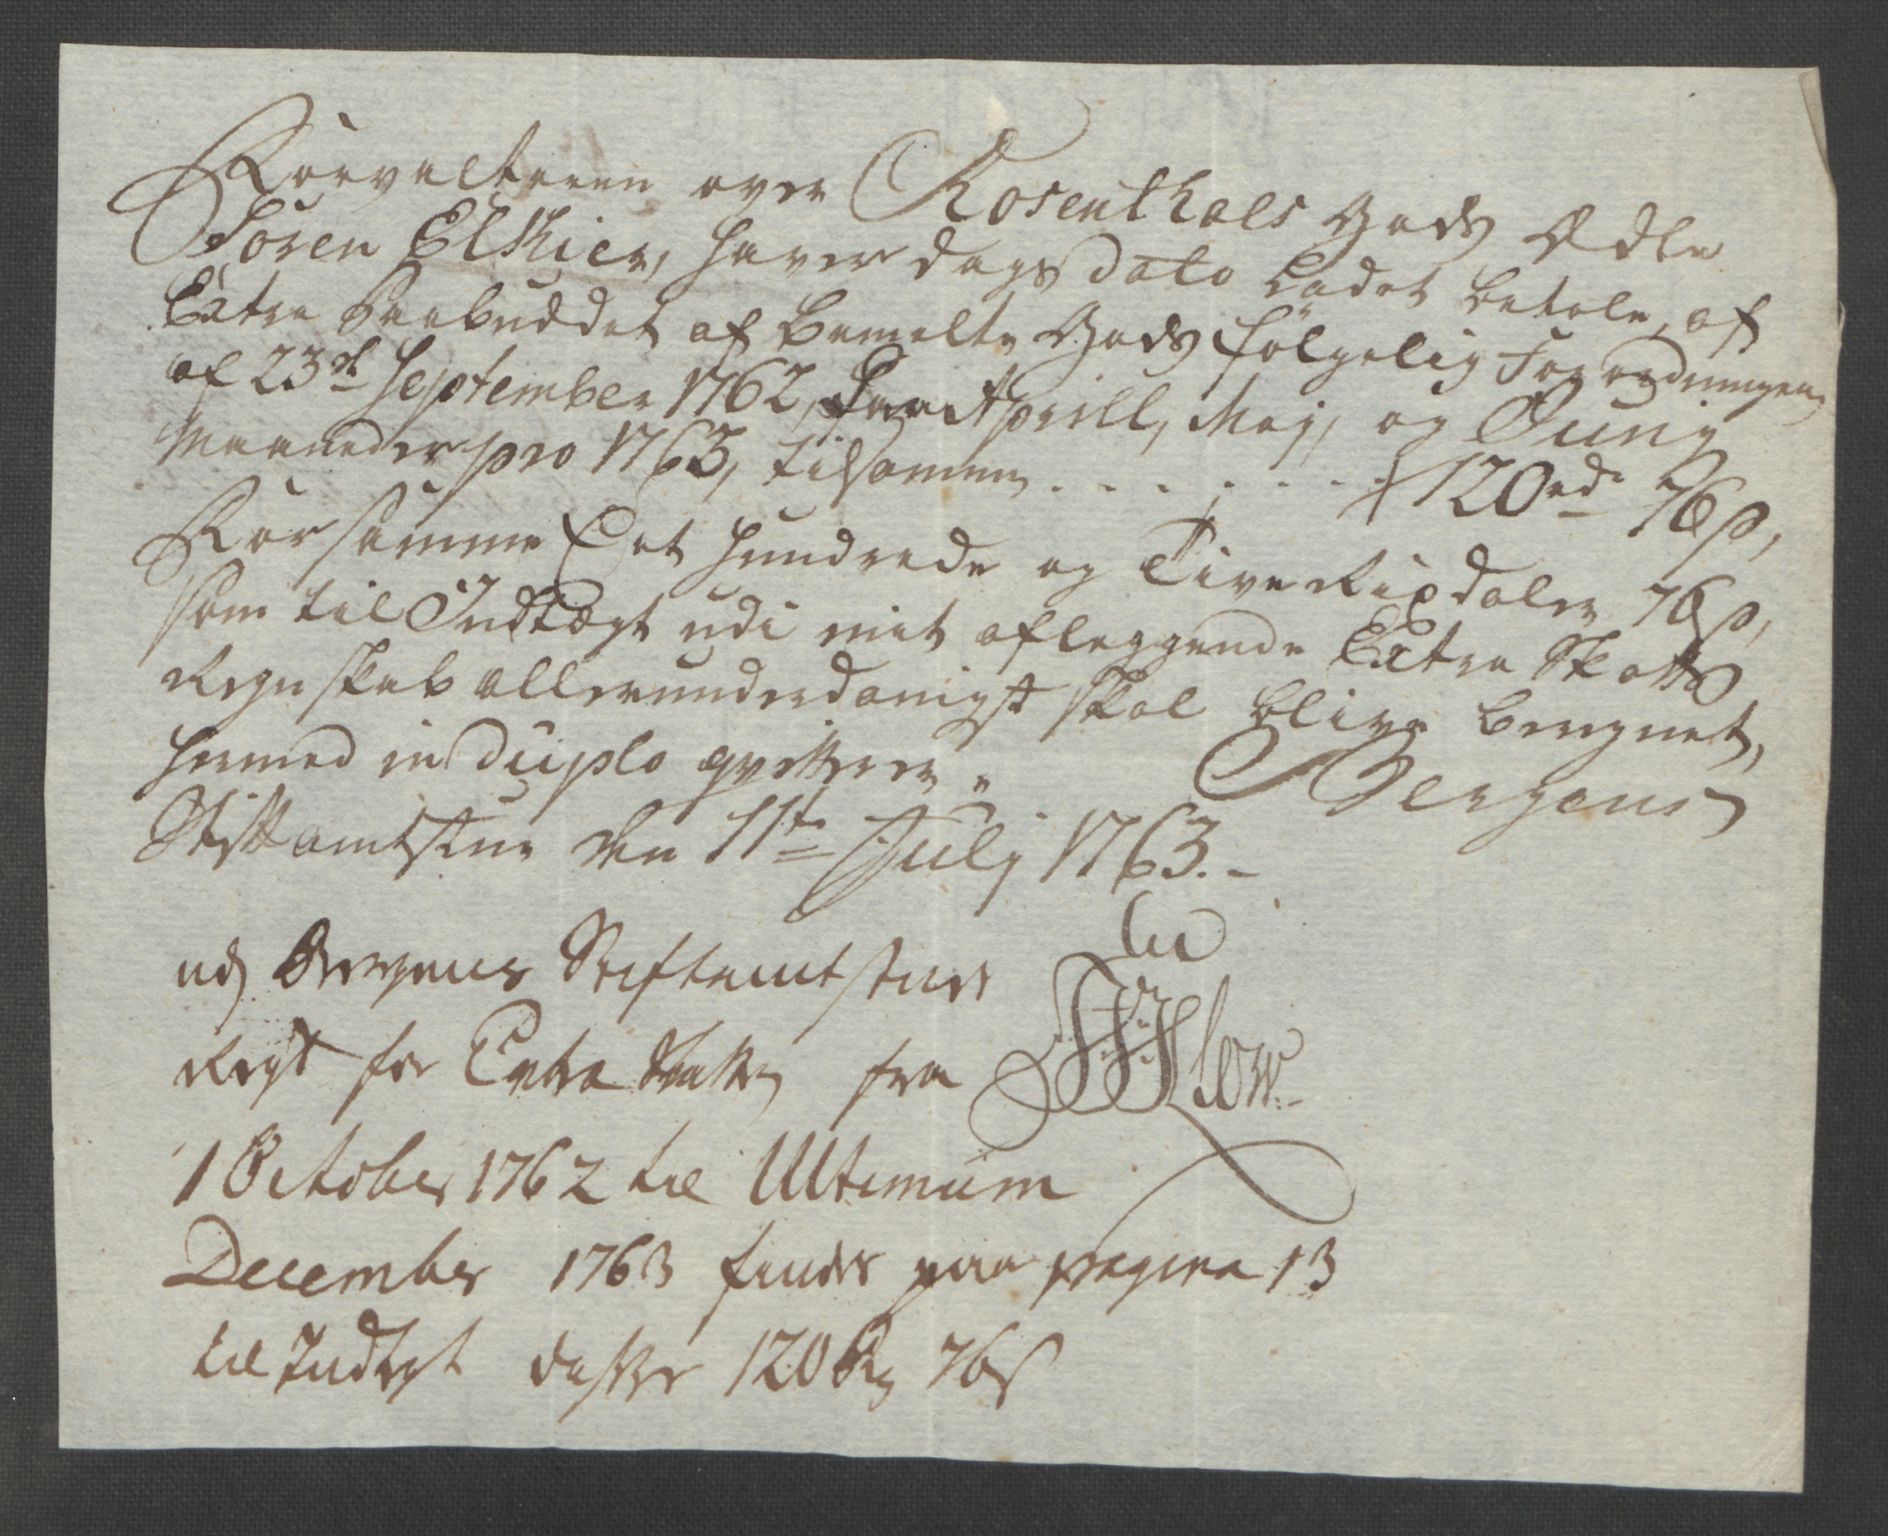 Forvalteren over Rosenthals Gods Ædle
Sören Elkier, haver dags Dato ladet betale, af
Extra Paabuddet af bemelte Gods følgelig Forordningen
af 23de September 1762, for Aprill, Maj, og Junij
Maaneder pro 1763, tilsamen . . . . . . . 120rd 76s,
For samme Eet hundrede og Tive Rixdaler 76s,
som til Indtægt udi mit aflæggende Extra Skatts
Regnskab allerunderdanigst skal blive beregnet,
hermed in duplo qvitterer. Bergens
Stiftamtstue den 11te Julij 1763.
udj Bergens Stiftamtstues
Regt for Extra Skatten fra
1 October 1762 til Ultimum
December 1763 findes paa pagina 13
til Indtegt disse 120 Rd 76s